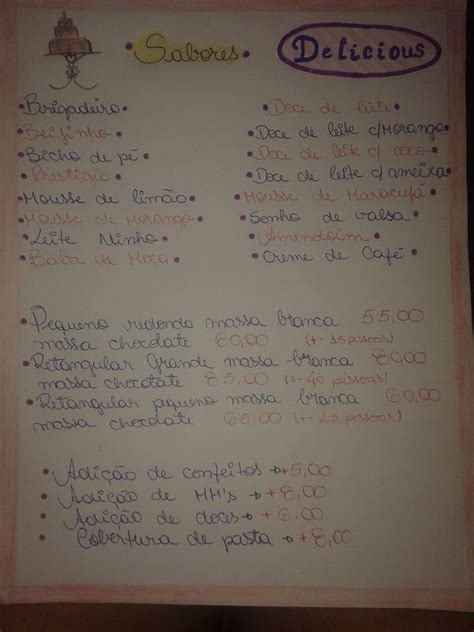 • Sabores •
Delicious
• Brigadeiro •
• Beijinho •
• Bicho de pé •
• Prestígio •
• Mousse de limão •
• Mousse de Morango •
• Leite Ninho •
• Baba de Moça •
• Doce de leite •
• Doce de leite c/Morango •
• Doce de leite c/ coco •
• Doce de leite c/ameixa •
• Mousse de Maracujá •
• Sonho de valsa •
• Amendoim •
• Creme de Café •
• Pequeno redondo massa branca 55,00
massa chocolate 60,00 (+- 15 pessoas)
• Retangular Grande massa branca 80,00
massa chocolate 85,00 (+- 40 pessoas)
• Retangular pequeno massa branca 60,00
massa chocolate 65,00 (+- 25 pessoas)
• Adição de confeitos → +5,00
• Adição de MM's → +8,00
• Adição de doces → +6,00
• Cobertura de pasta → +8,00